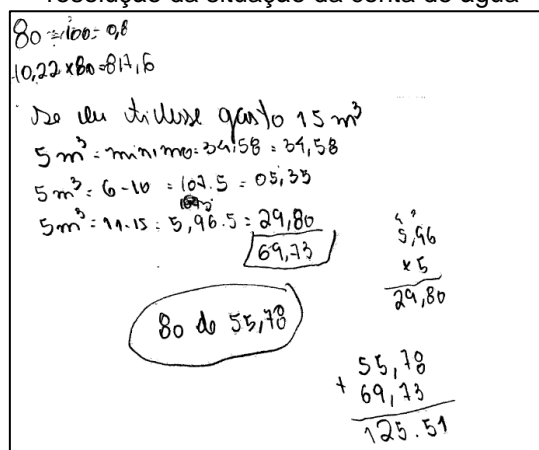 resolução da situação da conta de água
80 ÷ 100 = 0,8
10,22 x 80 = 817,6
Se eu tivesse gasto 15 m³
5 m³ = mínimo = 34,58 = 34,58
5 m³ = 6-10 = 107.5 = 05,35
5 m³ = 11-15 = 5,96.5 = 29,80
69,73
5,96
x 5
29,80
80 de 55,78
55,78
+ 69,73
125.51